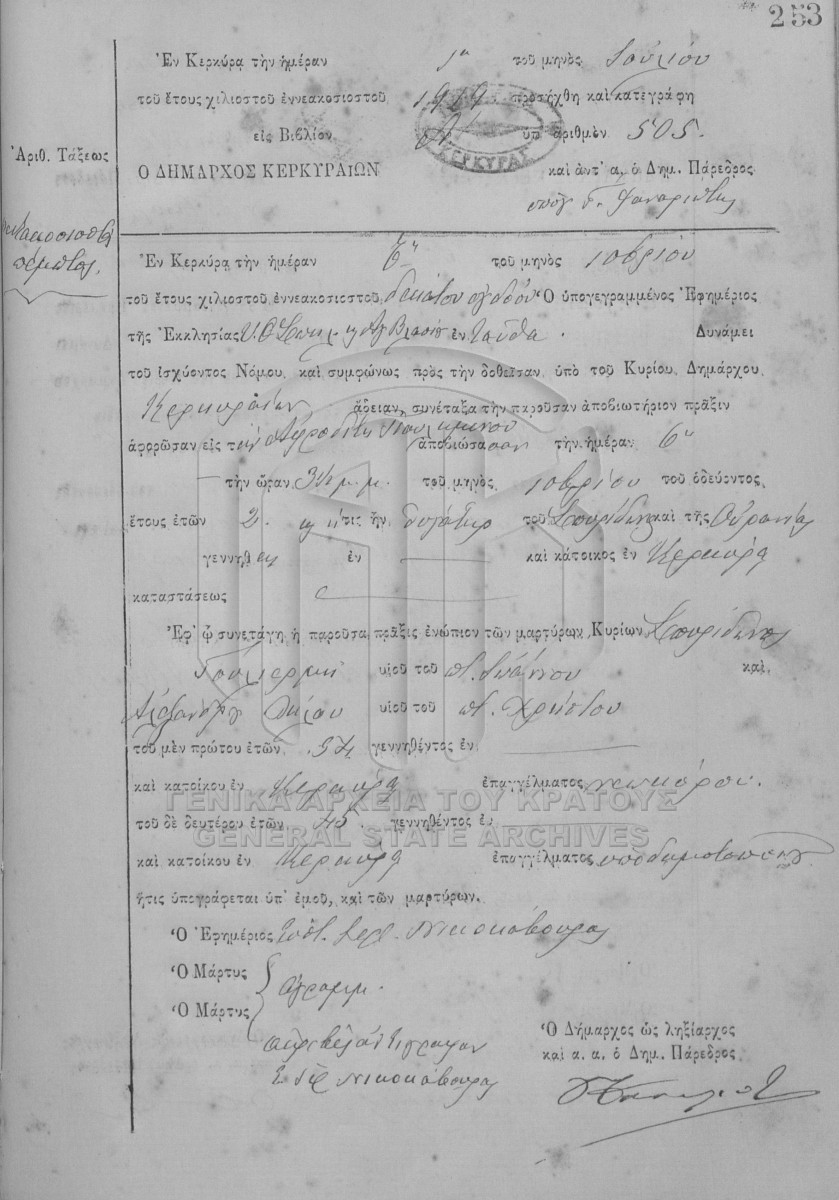 253
Ἐν Κερκύρᾳ τὴν ἡμέραν 1η τοῦ μηνὸς Ἰουλίου
τοῦ ἔτους χιλιοστοῦ ἐννεακοσιοστοῦ 1919 προσήχθη καὶ κατεγράφη
εἰς Βιβλίον ὑπ' ἀριθμὸν 505.
ΚΕΡΚΥΡΑΣ
Ἀριθ. Τάξεως
Ο ΔΗΜΑΡΧΟΣ ΚΕΡΚΥΡΑΙΩΝ καὶ ἀντ' α, ὁ Δημ. Πάρεδρος
πέμπτος.
Ἐν Κερκύρᾳ τὴν ἡμέραν 6η τοῦ μηνὸς 10βρίου
τοῦ ἔτους χιλιοστοῦ ἐννεακοσιοστοῦ δεκάτου ὀγδόου Ὁ ὑπογεγραμμένος Ἐφημέριος
τῆς Ἐκκλησίας ἐνταῦθα. Δυνάμει
τοῦ ἰσχύοντος Νόμου, καὶ συμφώνως πρὸς τὴν δοθεῖσαν ὑπὸ τοῦ Κυρίου Δημάρχου
Κερκυραίων ἄδειαν, συνέταξα τὴν παροῦσαν ἀποβιωτήριον πρᾶξιν
ἀφορῶσαν εἰς τὴν Ἀφροδίτη ἀποβιώσασαν τὴν ἡμέραν 6η
τὴν ὥραν 3½ μ.μ. τοῦ μηνὸς 10βρίου τοῦ ὁδεύοντος
ἔτους ἐτῶν 2. ἥτις ἦν θυγάτηρ τοῦ Σπυρίδωνος καὶ τῆς Οὐρανίας
γεννηθ ἐν καὶ κάτοικος ἐν Κερκύρᾳ
καταστάσεως
Ἐφ' ᾧ συνετάγη ἡ παροῦσα πρᾶξις ἐνώπιον τῶν μαρτύρων Κυρίων Σπυρίδωνος
υἱοῦ τοῦ ποτ. Ἰωάννου καὶ
Ἀλεξάνδρου υἱοῦ τοῦ ποτ. Χρήστου
τοῦ μὲν πρώτου ἐτῶν 54 γεννηθέντος ἐν
καὶ κατοίκου ἐν Κερκύρᾳ ἐπαγγέλματος νεωκόρου.
ΓΕΝΙΚΑ ΑΡΧΕΙΑ ΤΟΥ ΚΡΑΤΟΥΣ
τοῦ δὲ δευτέρου ἐτῶν 45 γεννηθέντος ἐν
GENERAL STATE ARCHIVES
καὶ κατοίκου ἐν Κερκύρᾳ ἐπαγγέλματος ὑποδηματοποιοῦ
ἥτις ὑπογράφεται ὑπ' ἐμοῦ, καὶ τῶν μαρτύρων.
Ὁ Ἐφημέριος Νικοκάβουρας
Ὁ Μάρτυς
ἀγράμμ.
Ὁ Μάρτυς
Ὁ Δήμαρχος ὡς ληξίαρχος
ἀντίγραφον
καὶ α. α. ὁ Δημ. Πάρεδρος
Νικοκάβουρας